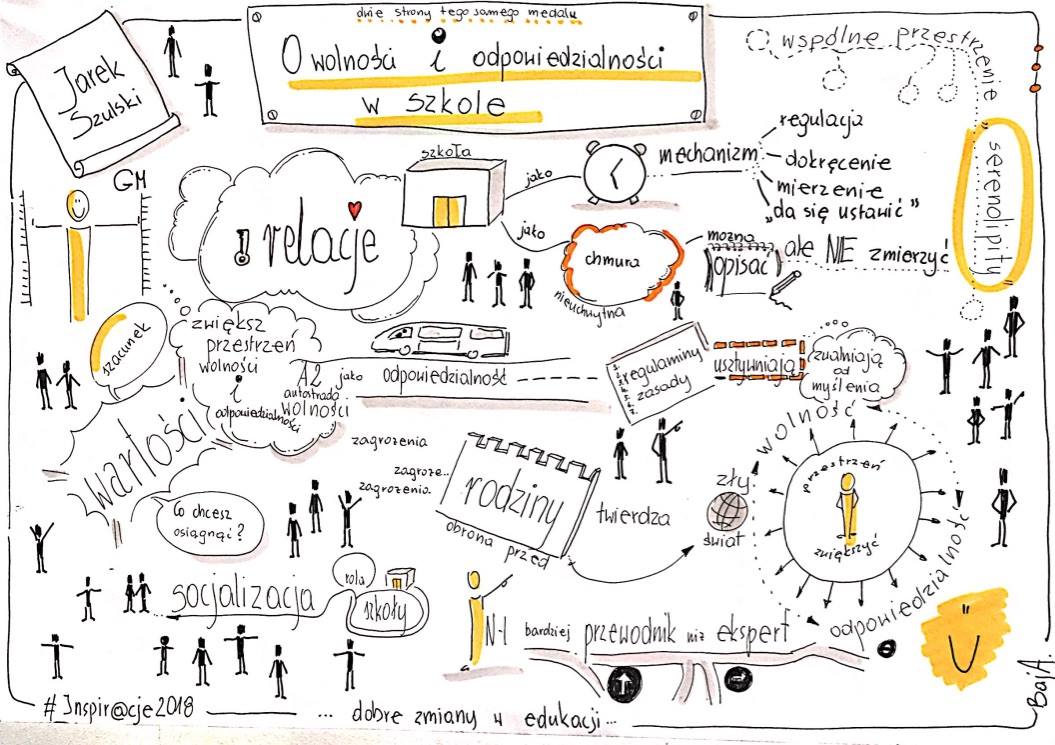 dwie strony tego samego medalu
O wolności i odpowiedzialności
w szkole
Jarek
Szulski
wspólne przestrzenie
"serendipity"
GM
relacje
szkoła
jako
mechanizm
regulacja
dokręcenie
mierzenie
"da się ustawić"
jako
chmura
nieuchwytna
można
opisać
ale NIE zmierzyć
szacunek
zwiększ
przestrzeń
wolności
i
odpowiedzialności
A2
autostrada
wolności
jako
odpowiedzialność
regulaminy
zasady
usztywniają
zwalniają
od
myślenia
wartości
Co chcesz
osiągnąć?
zagrożenia
zagroże..
zagrożenia.
rodziny
twierdza
obrona przed
zły
świat
wolność
przestrzeń
zwiększyć
odpowiedzialność
socjalizacja
rola
szkoły
N-l bardziej przewodnik niż ekspert
#Inspir@cje2018
... dobre zmiany w edukacji...
BajA.